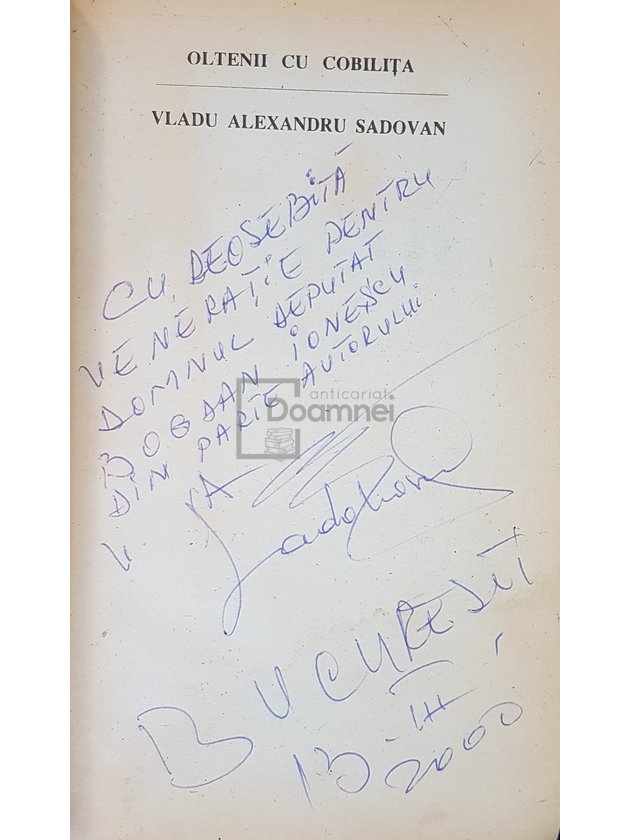 OLTENII CU COBILIȚA
VLADU ALEXANDRU SADOVAN
CU DEOSEBITĂ
VENERAȚIE PENTRU
DOMNUL DEPUTAT
BOGDAN IONESCU
DIN PARTE AUTORULUI
anticariat
Doamnei
V. A. Sadovan
BUCUREȘTI
13-III-2000